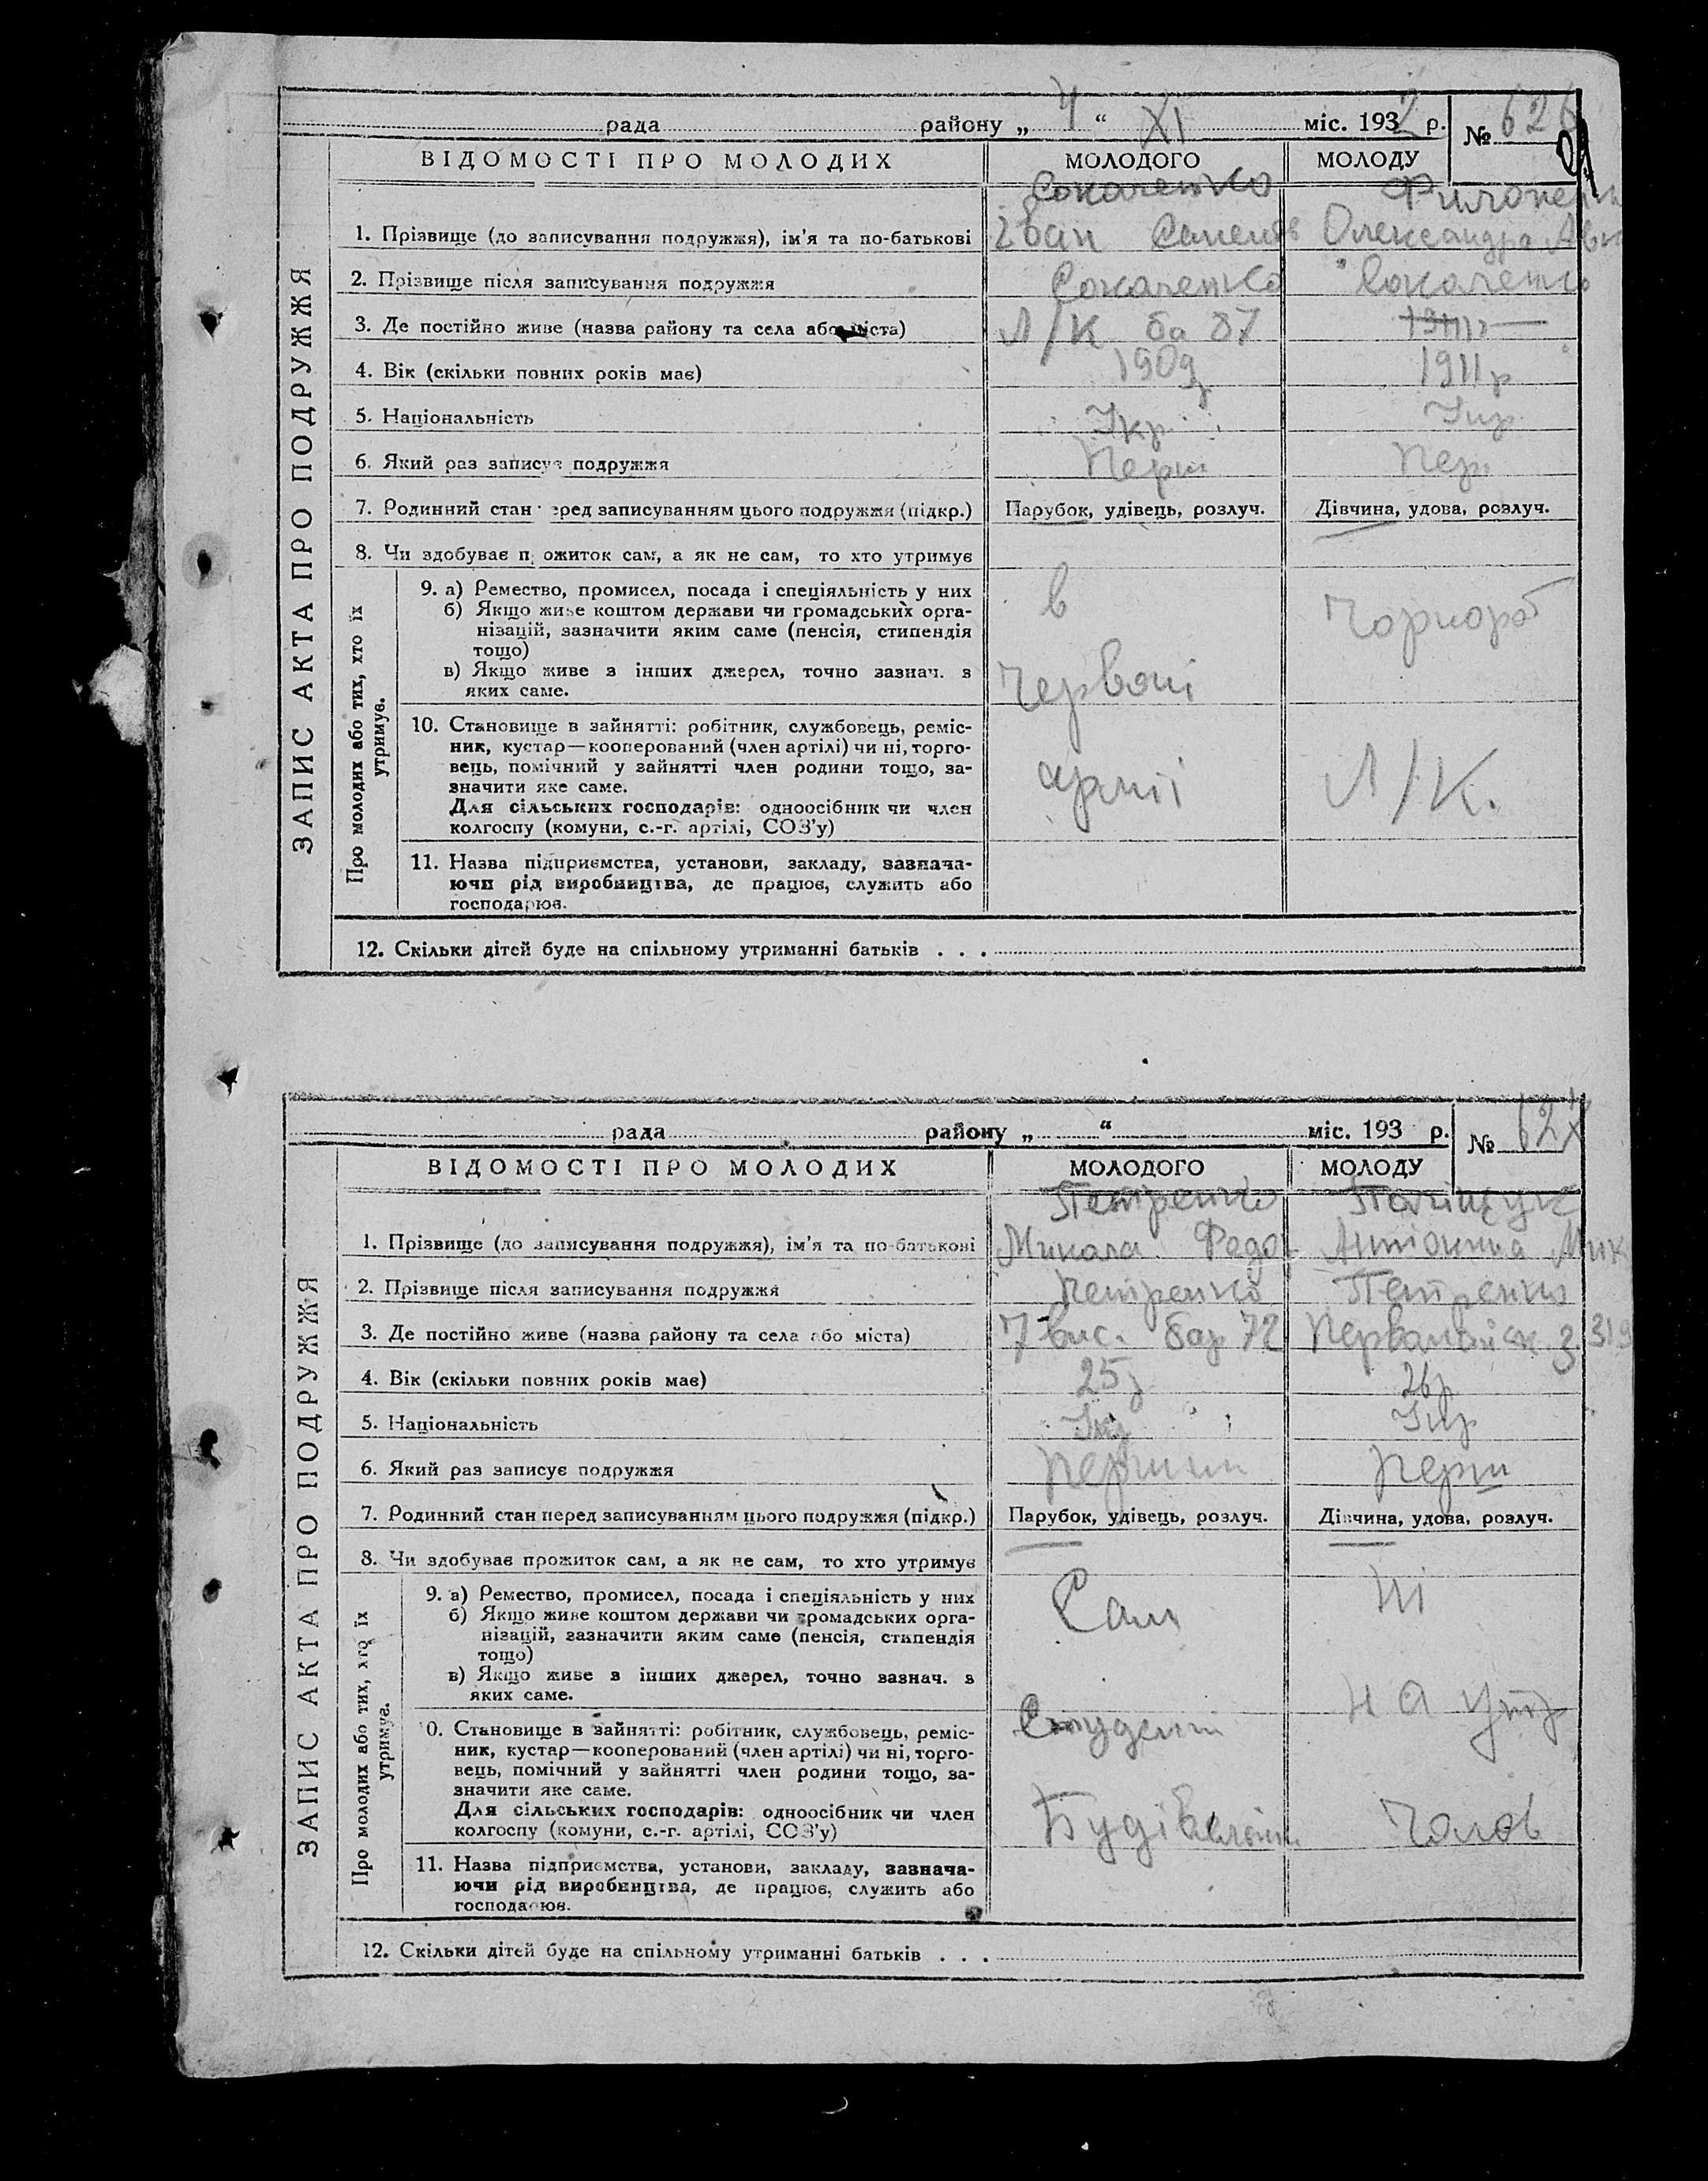 рада району „ 4 “ XI міс. 1932 р. № 626
ВІДОМОСТІ ПРО МОЛОДИХ МОЛОДОГО МОЛОДУ
ЗАПИС АКТА ПРО ПОДРУЖЖЯ
1. Прізвище (до записування подружжя), ім'я та по-батькові Іван Олександра
2. Прізвище після записування подружжя
3. Де постійно живе (назва району та села або міста) Л/К ба 87
4. Вік (скільки повних років має) 1909р 1911р
5. Національність Укр Укр
6. Який раз записує подружжя Перш Пер
7. Родинний стан перед записуванням цього подружжя (підкр.) Парубок, удівець, розлуч. Дівчина, удова, розлуч.
8. Чи здобуває прожиток сам, а як не сам, то хто утримує
Про молодих або тих, хто їх утримує.
9. а) Ремество, промисел, посада і спеціяльність у них в
б) Якщо живе коштом держави чи громадських орга- Чорнороб
нізацій, зазначити яким саме (пенсія, стипендія
тощо)
в) Якщо живе з інших джерел, точно зазнач. з Червоні
яких саме.
10. Становище в зайнятті: робітник, службовець, реміс-
ник, кустар—кооперований (член артілі) чи ні, торго-
вець, помічний у зайнятті член родини тощо, за- армії Л/К.
значити яке саме.
Для сільських господарів: одноосібник чи член
колгоспу (комуни, с.-г. артілі, СОЗ'у)
11. Назва підприємства, установи, закладу, зазнача-
ючи рід виробництва, де працює, служить або
господарює.
12. Скільки дітей буде на спільному утриманні батьків . . .
рада району „ “ міс. 193 р. № 627
ВІДОМОСТІ ПРО МОЛОДИХ МОЛОДОГО МОЛОДУ
ЗАПИС АКТА ПРО ПОДРУЖЖЯ
Петренко Поліщук
1. Прізвище (до записування подружжя), ім'я та по-батькові Микола Федо Антоніна Мик
2. Прізвище після записування подружжя Петренко Петренко
3. Де постійно живе (назва району та села або міста) 7 вис. бар 72 Первомайськ 3. 319
4. Вік (скільки повних років має) 25р 26р
5. Національність Укр Укр
6. Який раз записує подружжя Перший Перш
7. Родинний стан перед записуванням цього подружжя (підкр.) Парубок, удівець, розлуч. Дівчина, удова, розлуч.
8. Чи здобуває прожиток сам, а як не сам, то хто утримує
Про молодих або тих, хто їх утримує.
9. а) Ремество, промисел, посада і спеціяльність у них Сам ні
б) Якщо живе коштом держави чи громадських орга-
нізацій, зазначити яким саме (пенсія, стипендія
тощо)
в) Якщо живе з інших джерел, точно зазнач. з
яких саме. на утр
10. Становище в зайнятті: робітник, службовець, реміс- Студент
ник, кустар—кооперований (член артілі) чи ні, торго-
вець, помічний у зайнятті член родини тощо, за-
значити яке саме.
Для сільських господарів: одноосібник чи член чолов
колгоспу (комуни, с.-г. артілі, СОЗ'у)
11. Назва підприємства, установи, закладу, зазнача-
ючи рід виробництва, де працює, служить або
господарює.
12. Скільки дітей буде на спільному утриманні батьків . . .